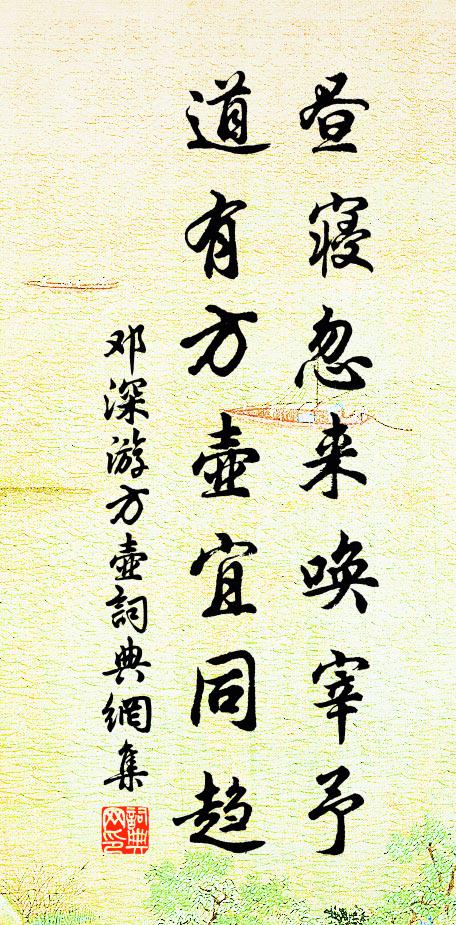 昼寝忽来唤宰予
道有方壶宜同趋
邓深游方壶詞典網集
詞典网印